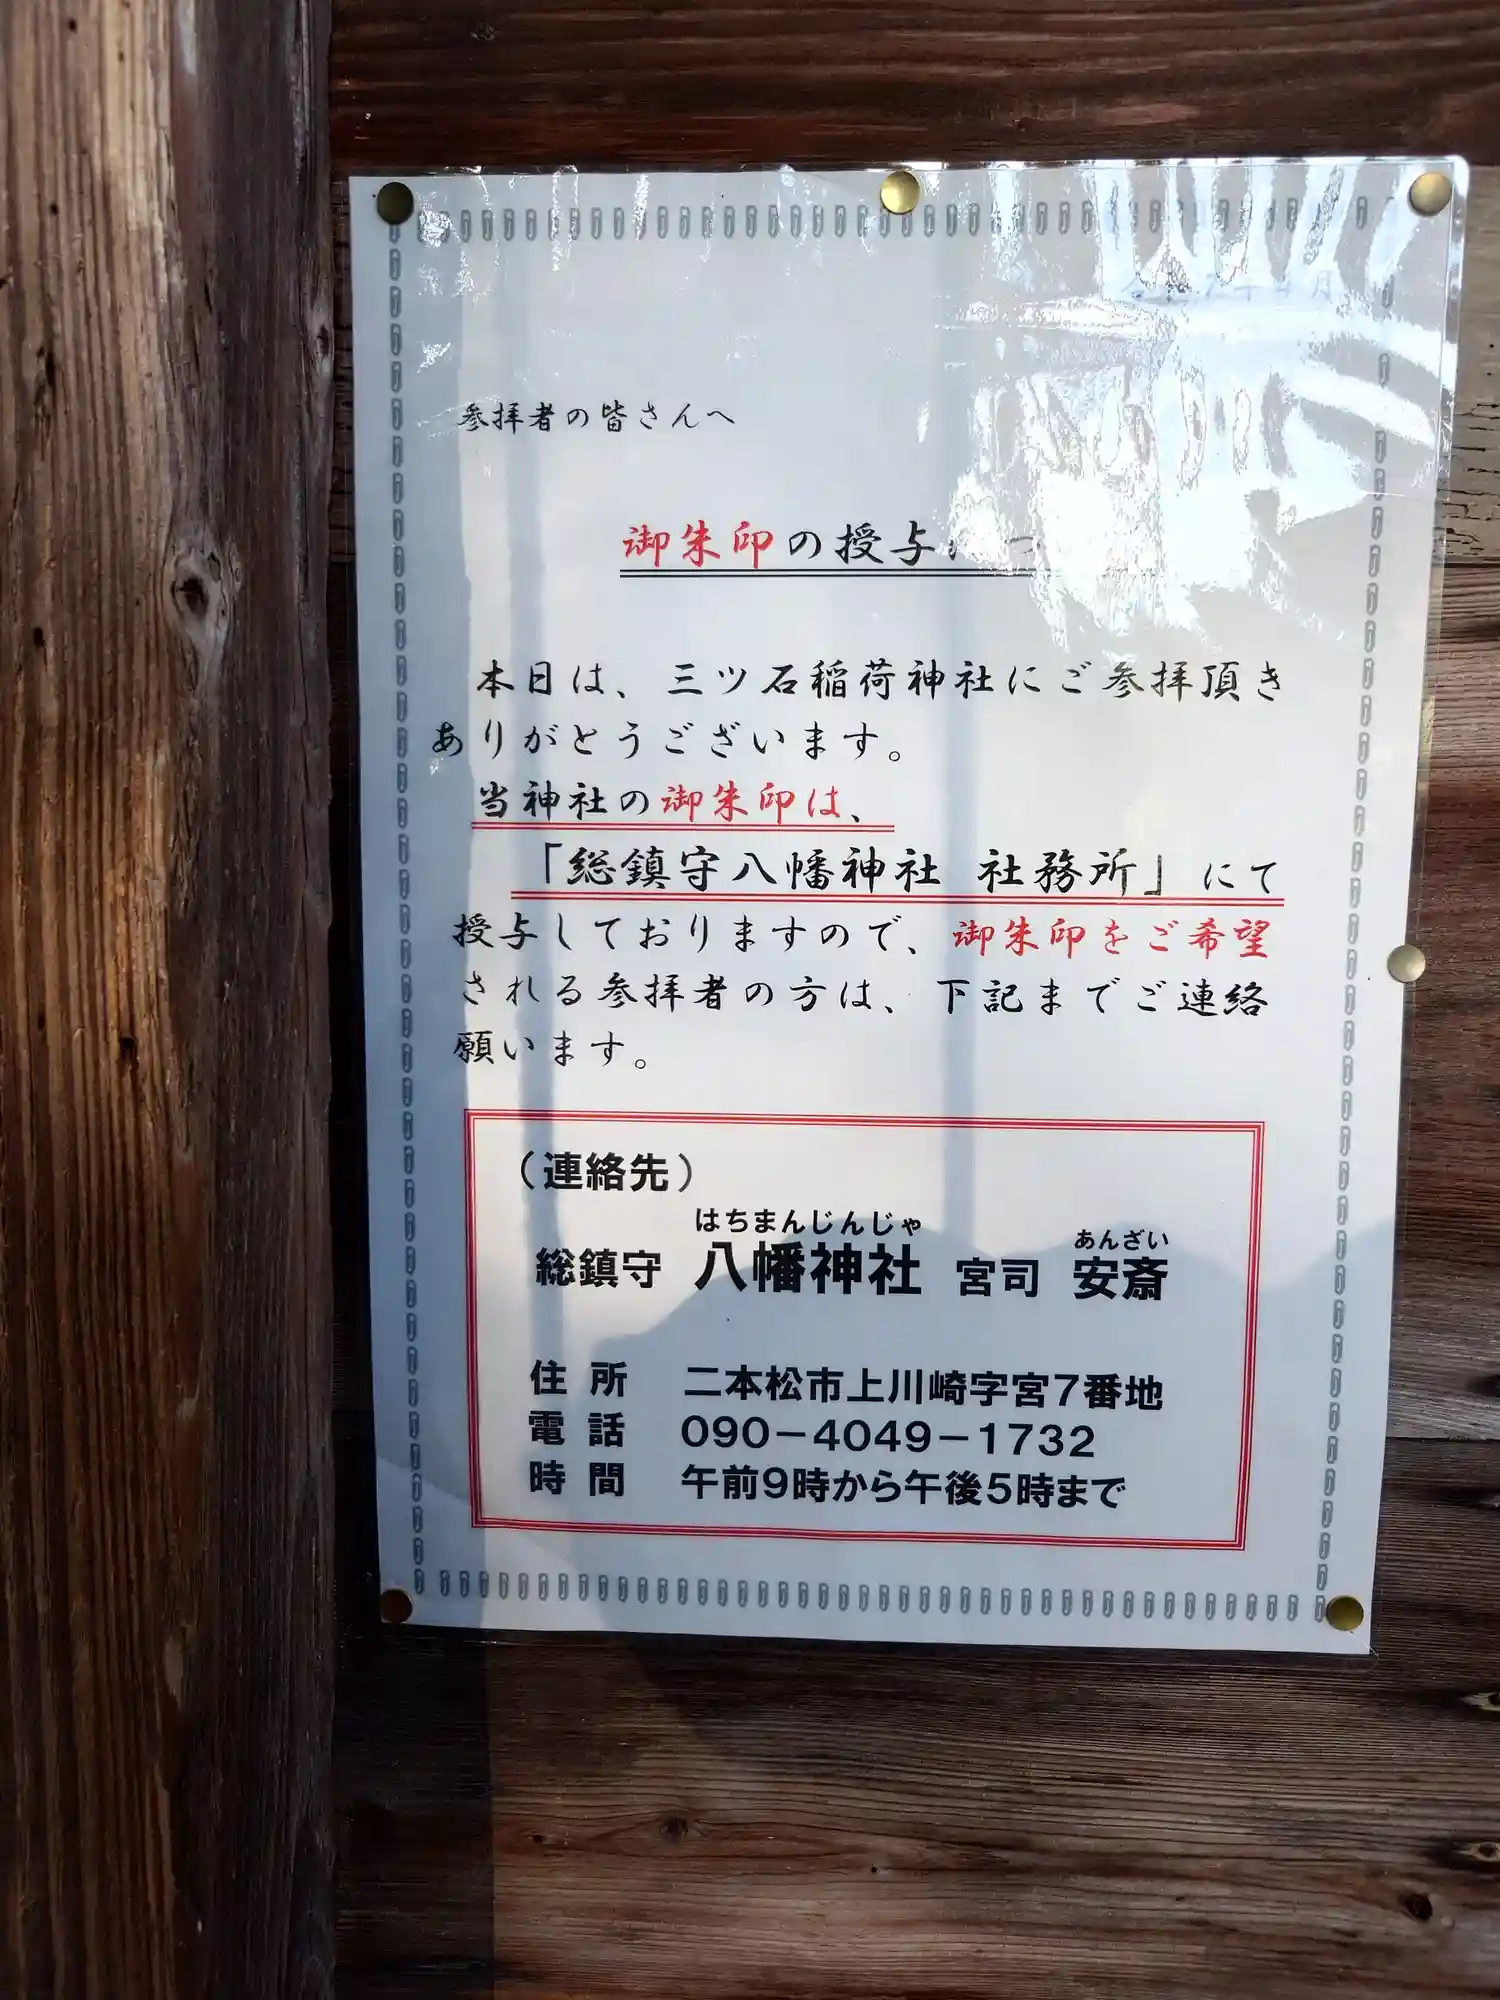 参拝者の皆さんへ
御朱印の授与につ
本日は、三ツ石稲荷神社にご参拝頂き
ありがとうございます。
当神社の御朱印は、
「総鎮守八幡神社 社務所」にて
授与しておりますので、御朱印をご希望
される参拝者の方は、下記までご連絡
願います。
（連絡先）
はちまんじんじゃ あんざい
総鎮守 八幡神社 宮司 安斎
住所 二本松市上川崎字宮7番地
電話 090－4049－1732
時間 午前9時から午後5時まで